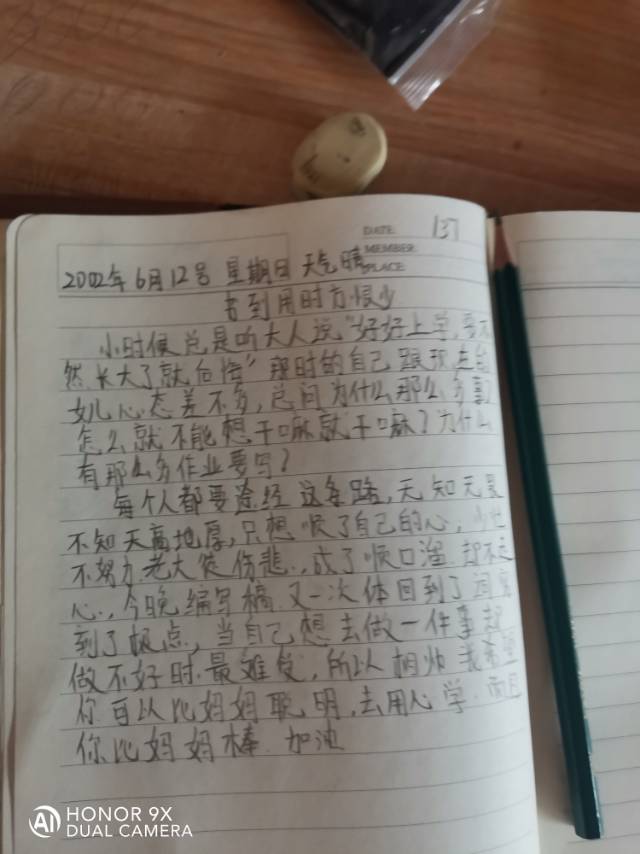 DATE 137
MEMBER
PLACE
2002年6月12号 星期日 天气晴
书到用时方恨少
小时候总是听大人说“好好上学,要不
然长大了就后悔”那时的自己跟现在
女儿心态差不多,总问为什么那么多事
怎么就不能想干嘛就干嘛?为什么
有那么多作业要写?
每个人都要途经这条路,无知无畏
不知天高地厚,只想顺了自己的心,少壮
不努力老大徒伤悲,成了顺口溜 却不走
心,今晚编写稿 又一次体回到了词穷
到了极点,当自己想去做一件事却
做不好时最难受,所以相帅我希望
你可以比妈妈聪明,去用心学.而且
你比妈妈棒 加油
HONOR 9X
DUAL CAMERA